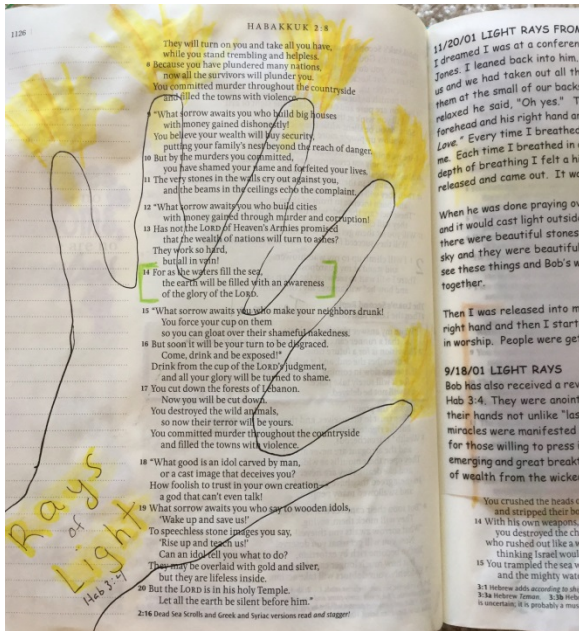 1126
HABAKKUK 2:8
They will turn on you and take all you have,
while you stand trembling and helpless.
8 Because you have plundered many nations,
now all the survivors will plunder you.
You committed murder throughout the countryside
and filled the towns with violence.
9 "What sorrow awaits you who build big houses
with money gained dishonestly!
You believe your wealth will buy security,
putting your family's nest beyond the reach of danger.
10 But by the murders you committed,
you have shamed your name and forfeited your lives.
11 The very stones in the walls cry out against you,
and the beams in the ceilings echo the complaint.
12 "What sorrow awaits you who build cities
with money gained through murder and corruption!
13 Has not the LORD of Heaven's Armies promised
that the wealth of nations will turn to ashes?
They work so hard,
but all in vain!
14 For as the waters fill the sea,
the earth will be filled with an awareness
of the glory of the LORD.
15 "What sorrow awaits you who make your neighbors drunk!
You force your cup on them
so you can gloat over their shameful nakedness.
16 But soon it will be your turn to be disgraced.
Come, drink and be exposed!*
Drink from the cup of the LORD's judgment,
and all your glory will be turned to shame.
17 You cut down the forests of Lebanon.
Now you will be cut down.
You destroyed the wild animals,
so now their terror will be yours.
You committed murder throughout the countryside
and filled the towns with violence.
18 "What good is an idol carved by man,
or a cast image that deceives you?
How foolish to trust in your own creation—
a god that can't even talk!
19 What sorrow awaits you who say to wooden idols,
'Wake up and save us!'
To speechless stone images you say,
'Rise up and teach us!'
Can an idol tell you what to do?
They may be overlaid with gold and silver,
but they are lifeless inside.
20 But the LORD is in his holy Temple.
Let all the earth be silent before him."
2:16 Dead Sea Scrolls and Greek and Syriac versions read and stagger!
Rays
of
Light
Hab 3:4
11/20/01 LIGHT RAYS FROM
I dreamed I was at a conferen
Jones. I leaned back into him.
us and we had taken out all th
them at the small of our back
relaxed he said, "Oh yes." T
forehead and his right hand a
Love." Every time I breathed
me. Each time I breathed in
depth of breathing I felt a h
released and came out. It wa
When he was done praying ov
and it would cast light outsid
there were beautiful stones
sky and they were beautiful
see these things and Bob's w
together.
Then I was released into m
right hand and then I start
in worship. People were ge
9/18/01 LIGHT RAYS
Bob has also received a rev
Hab 3:4. They were anoint
their hands not unlike "las
miracles were manifested
for those willing to press
emerging and great breakt
of wealth from the wicke
You crushed the heads
and stripped their bo
14 With his own weapons,
you destroyed the ch
who rushed out like a w
thinking Israel woul
15 You trampled the sea w
and the mighty wat
3:1 Hebrew adds according to sh
3:3a Hebrew Teman. 3:3b Heb
is uncertain; it is probably a mus